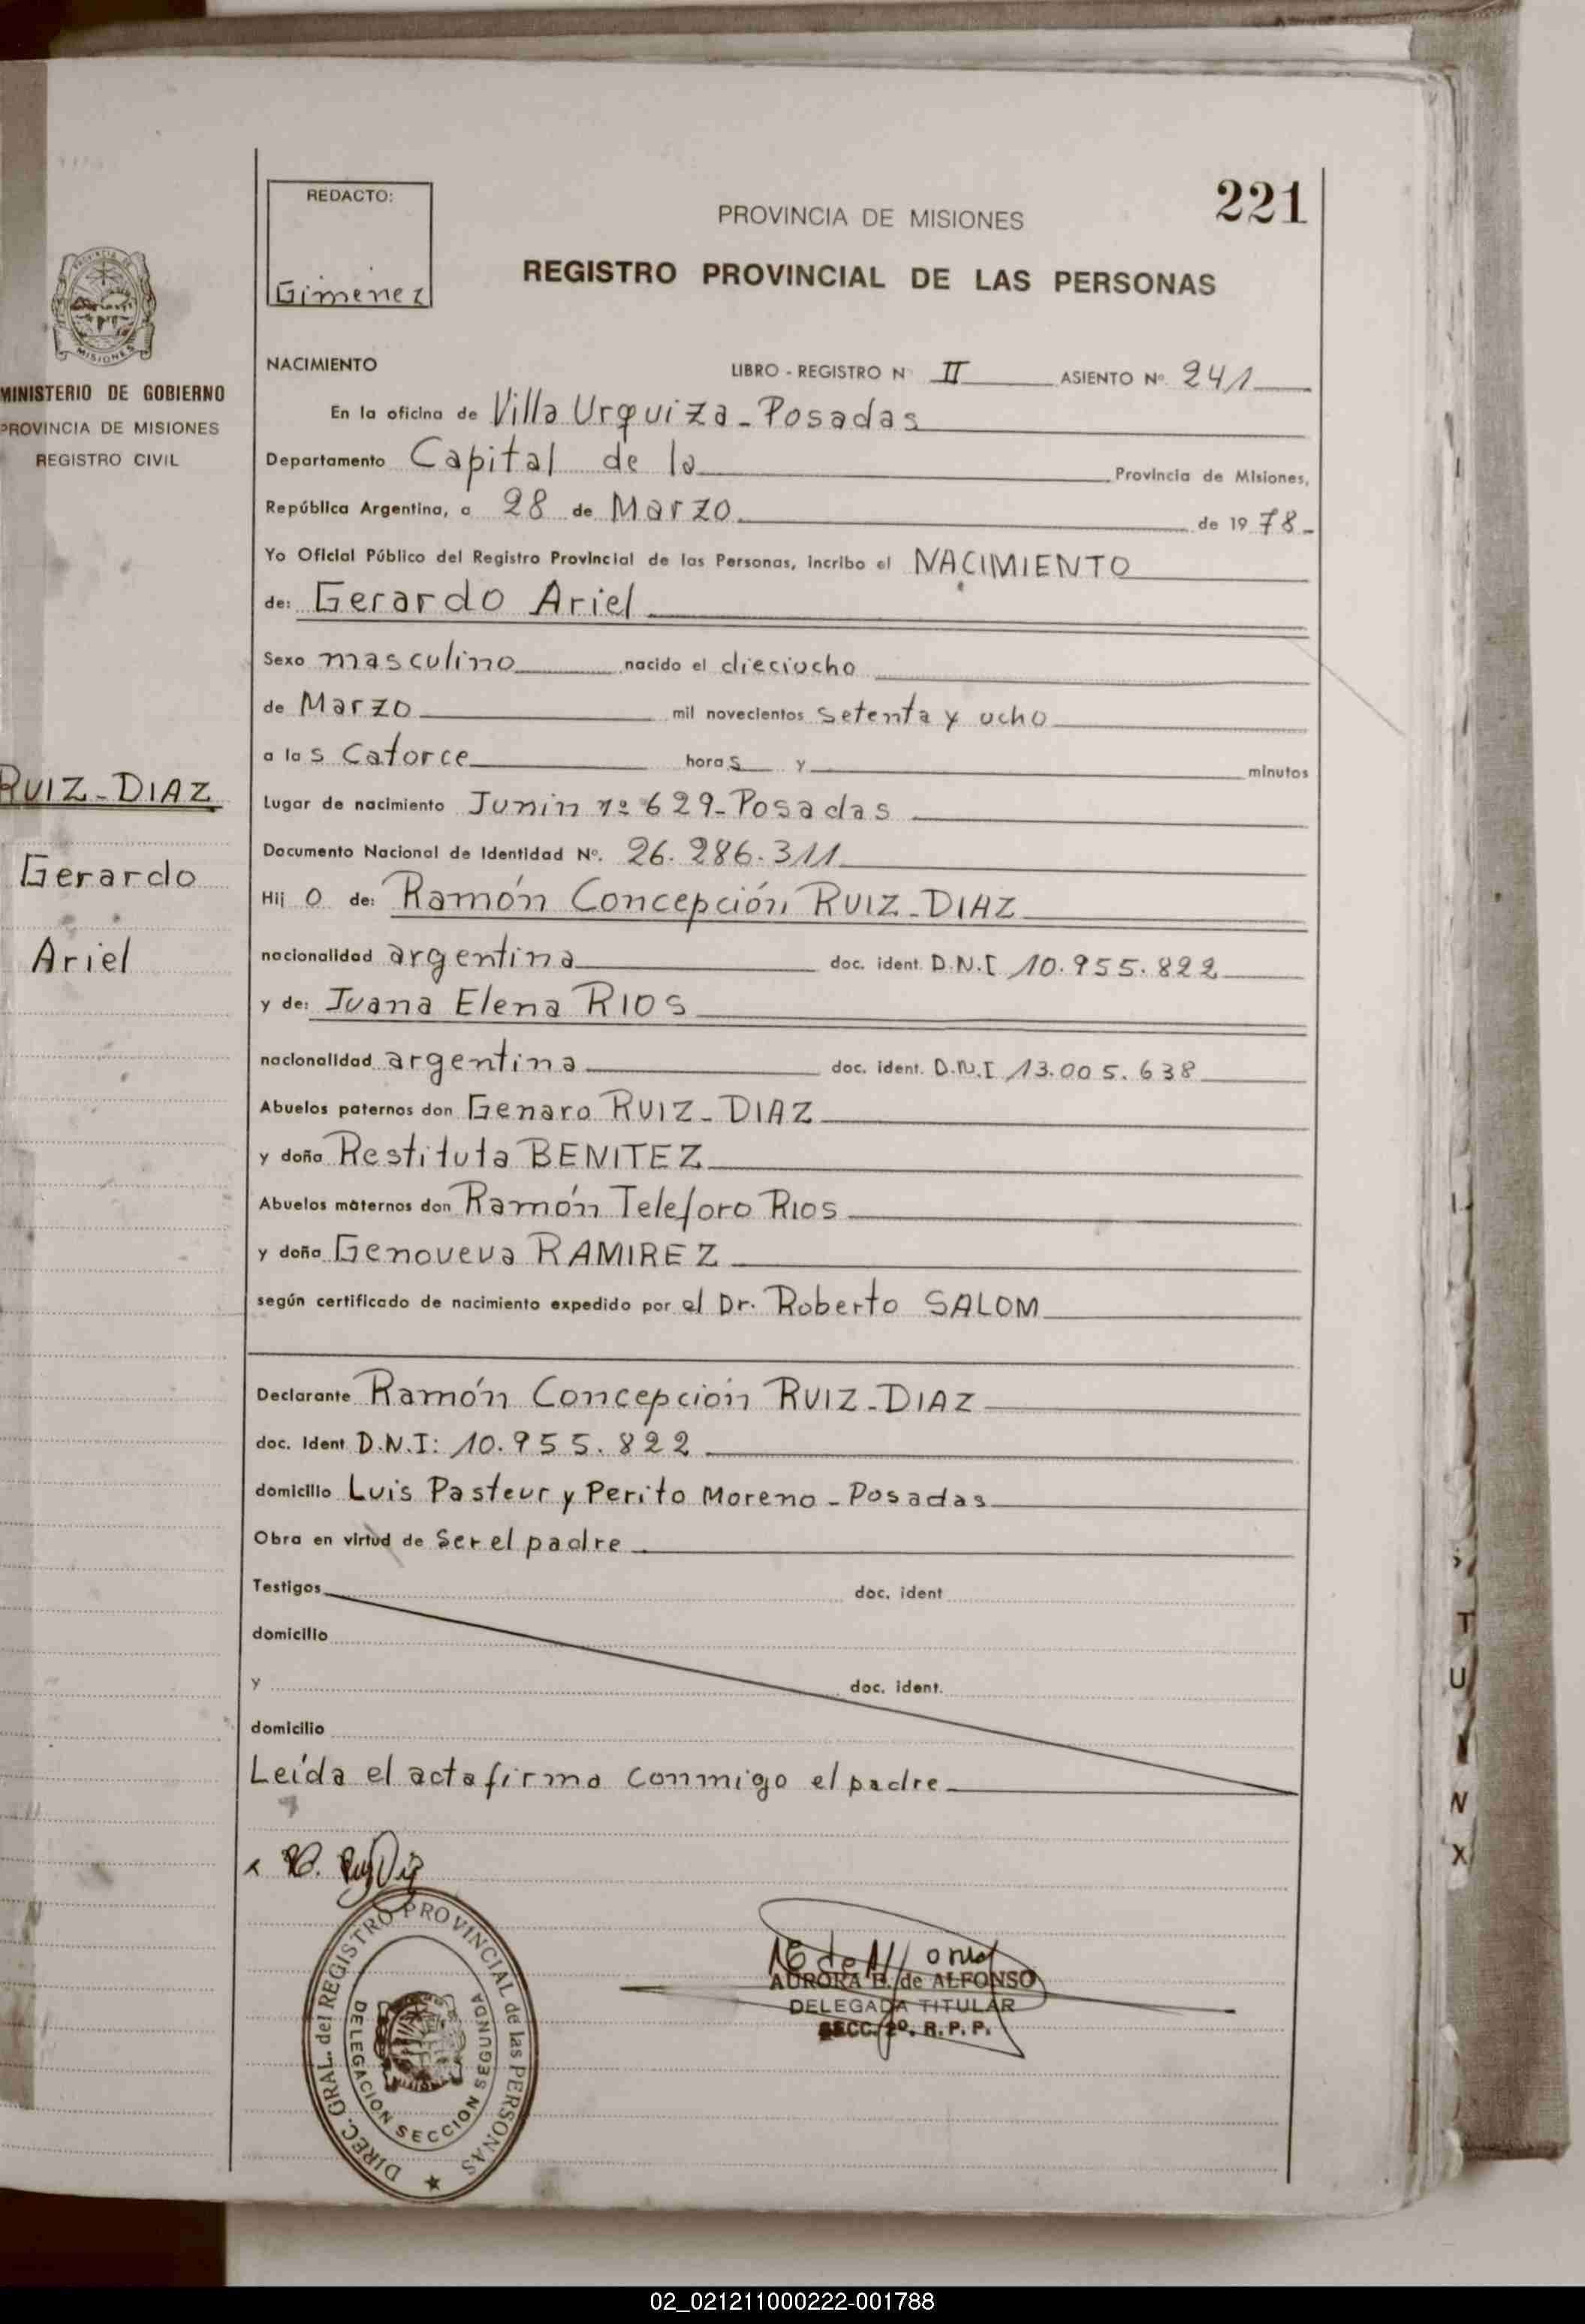 221
REDACTO:
Gimenez
PROVINCIA DE MISIONES
REGISTRO PROVINCIAL DE LAS PERSONAS
MISIONES
MINISTERIO DE GOBIERNO
PROVINCIA DE MISIONES
REGISTRO CIVIL
RUIZ-DIAZ
Gerardo
Ariel
NACIMIENTO LIBRO - REGISTRO Nº II ASIENTO Nº 241
En la oficina de Villa Urquiza - Posadas
Departamento Capital de la Provincia de Misiones,
República Argentina, a 28 de Marzo de 1978-
Yo Oficial Público del Registro Provincial de las Personas, incribo el NACIMIENTO
de: Gerardo Ariel
Sexo masculino nacido el dieciocho
de Marzo mil novecientos setenta y ocho
a las Catorce horas y minutos
Lugar de nacimiento Junin nº 629-Posadas
Documento Nacional de Identidad Nº. 26.286.311
Hijo de: Ramón Concepción RUIZ-DIAZ
nacionalidad argentina doc. ident. D.N.I 10.955.822
y de: Juana Elena RIOS
nacionalidad argentina doc. ident. D.N.I 13.005.638
Abuelos paternos don Genaro RUIZ-DIAZ
y doña Restituta BENITEZ
Abuelos maternos don Ramón Teleforo RIOS
y doña Genoveva RAMIREZ
según certificado de nacimiento expedido por el Dr. Roberto SALOM
Declarante Ramón Concepción RUIZ-DIAZ
doc. Ident D.N.I: 10.955.822
domicilio Luis Pasteur y Perito Moreno - Posadas
Obra en virtud de Ser el padre
Testigos doc. ident
domicilio
y doc. ident.
domicilio
Leída el acta firma conmigo el padre
R. Ruiz Diaz
DIREC. GRAL. del REGISTRO PROVINCIAL de las PERSONAS
DELEGACION SECCION SEGUNDA
AURORA E. de ALFONSO
DELEGADA TITULAR
SECC. 2º. R. P. P.
T
U
N
X
02_021211000222-001788